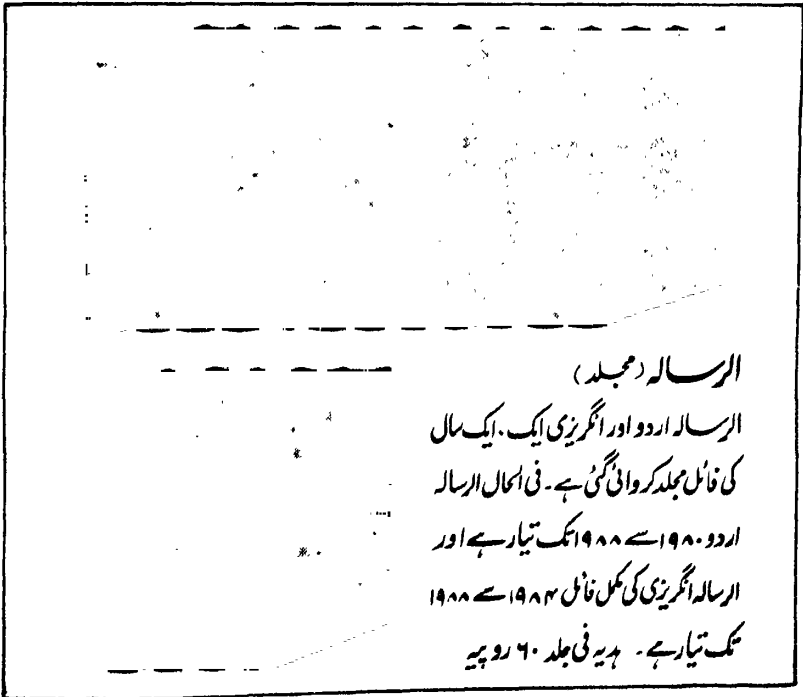 الرسالہ (مجلد)
الرسالہ اردو اور انگریزی ایک ۔ ایک سال
کی فائل مجلد کروائی گئی ہے ۔ فی الحال الرسالہ
اردو ۱۹۸۰ سے ۱۹۸۸ تک تیار ہے اور
الرسالہ انگریزی کی مکمل فائل ۱۹۸۴ سے ۱۹۸۸
تک تیار ہے ۔ ہدیہ فی جلد ۶۰ روپیہ